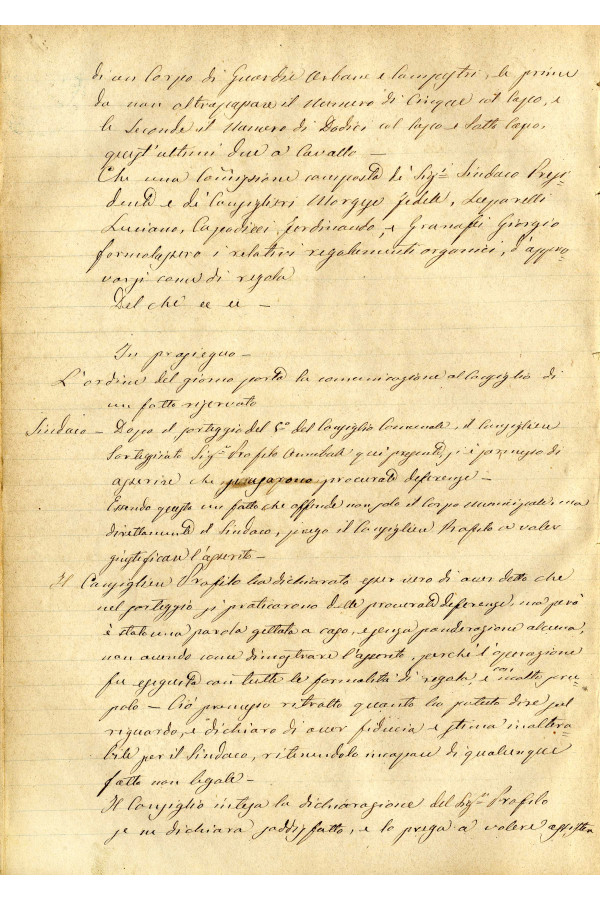 di un Corpo di Guardie Urbane e Campestri, le prime
da non oltrapassare il numero di Cinque col Capo, e
le Seconde il numero di Dodici col Capo e Sotto Capo,
quest'ultimi due a Cavallo —
Che una Commissione composta de' Sig.i Sindaco Presi-
dente e de' Consiglieri Morgese Fedele, Luparelli
Luciano, Capodieci Ferdinando, e Granafei Giorgio
formolassero i relativi regolamenti organici, d'appro-
varsi come di regola
Del che ec ec —
In prosieguo —
L'ordine del giorno porta la comunicazione al Consiglio di
un fatto riservato
Sindaco — Dopo il sorteggio del 5° del Consiglio Comunale, il Consigliere
Sorteggiato Sig.r Profilo Annibale qui presente, si è permesso di
asserire che procurate deferenze —
Essendo questo un fatto che offende non solo il Corpo Municipale, ma
direttamente il Sindaco, prego il Consigliere Profilo a voler
giustificare l'asserto —
Il Consigliere Profilo ha dichiarato esser vero di aver detto che
nel sorteggio si praticarono delle procurate deferenze, ma però
è stata una parola gettata a caso, e senza ponderazione alcuna,
non avendo come dimostrare l'asserto, perché l'operazione
fu eseguita con tutte le formalità di regola, e con molto scru-
polo — Ciò premesso ritratto quanto ha potuto dire sul
riguardo, e dichiaro di aver fiducia e stima inaltera-
bile per il Sindaco, ritenendolo incapace di qualunque
fatto non legale —
Il Consiglio intesa la dichiarazione del Sig.r Profilo
se ne dichiara soddisfatto, e lo prega a volere assistere